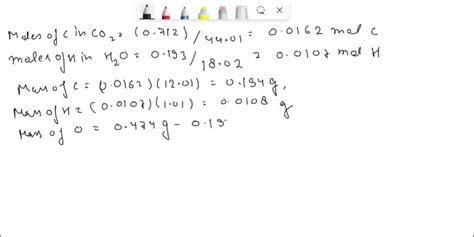 Moles of C in CO2 = (0.712) / 44.01 = 0.0162 mol C
moles of H in H2O = 0.193 / 18.02 = 0.0107 mol H
Mass of C = (0.0162)(12.01) = 0.194 g,
Mass of H = (0.0107)(1.01) = 0.0108 g
Mass of O = 0.474 g - 0.19